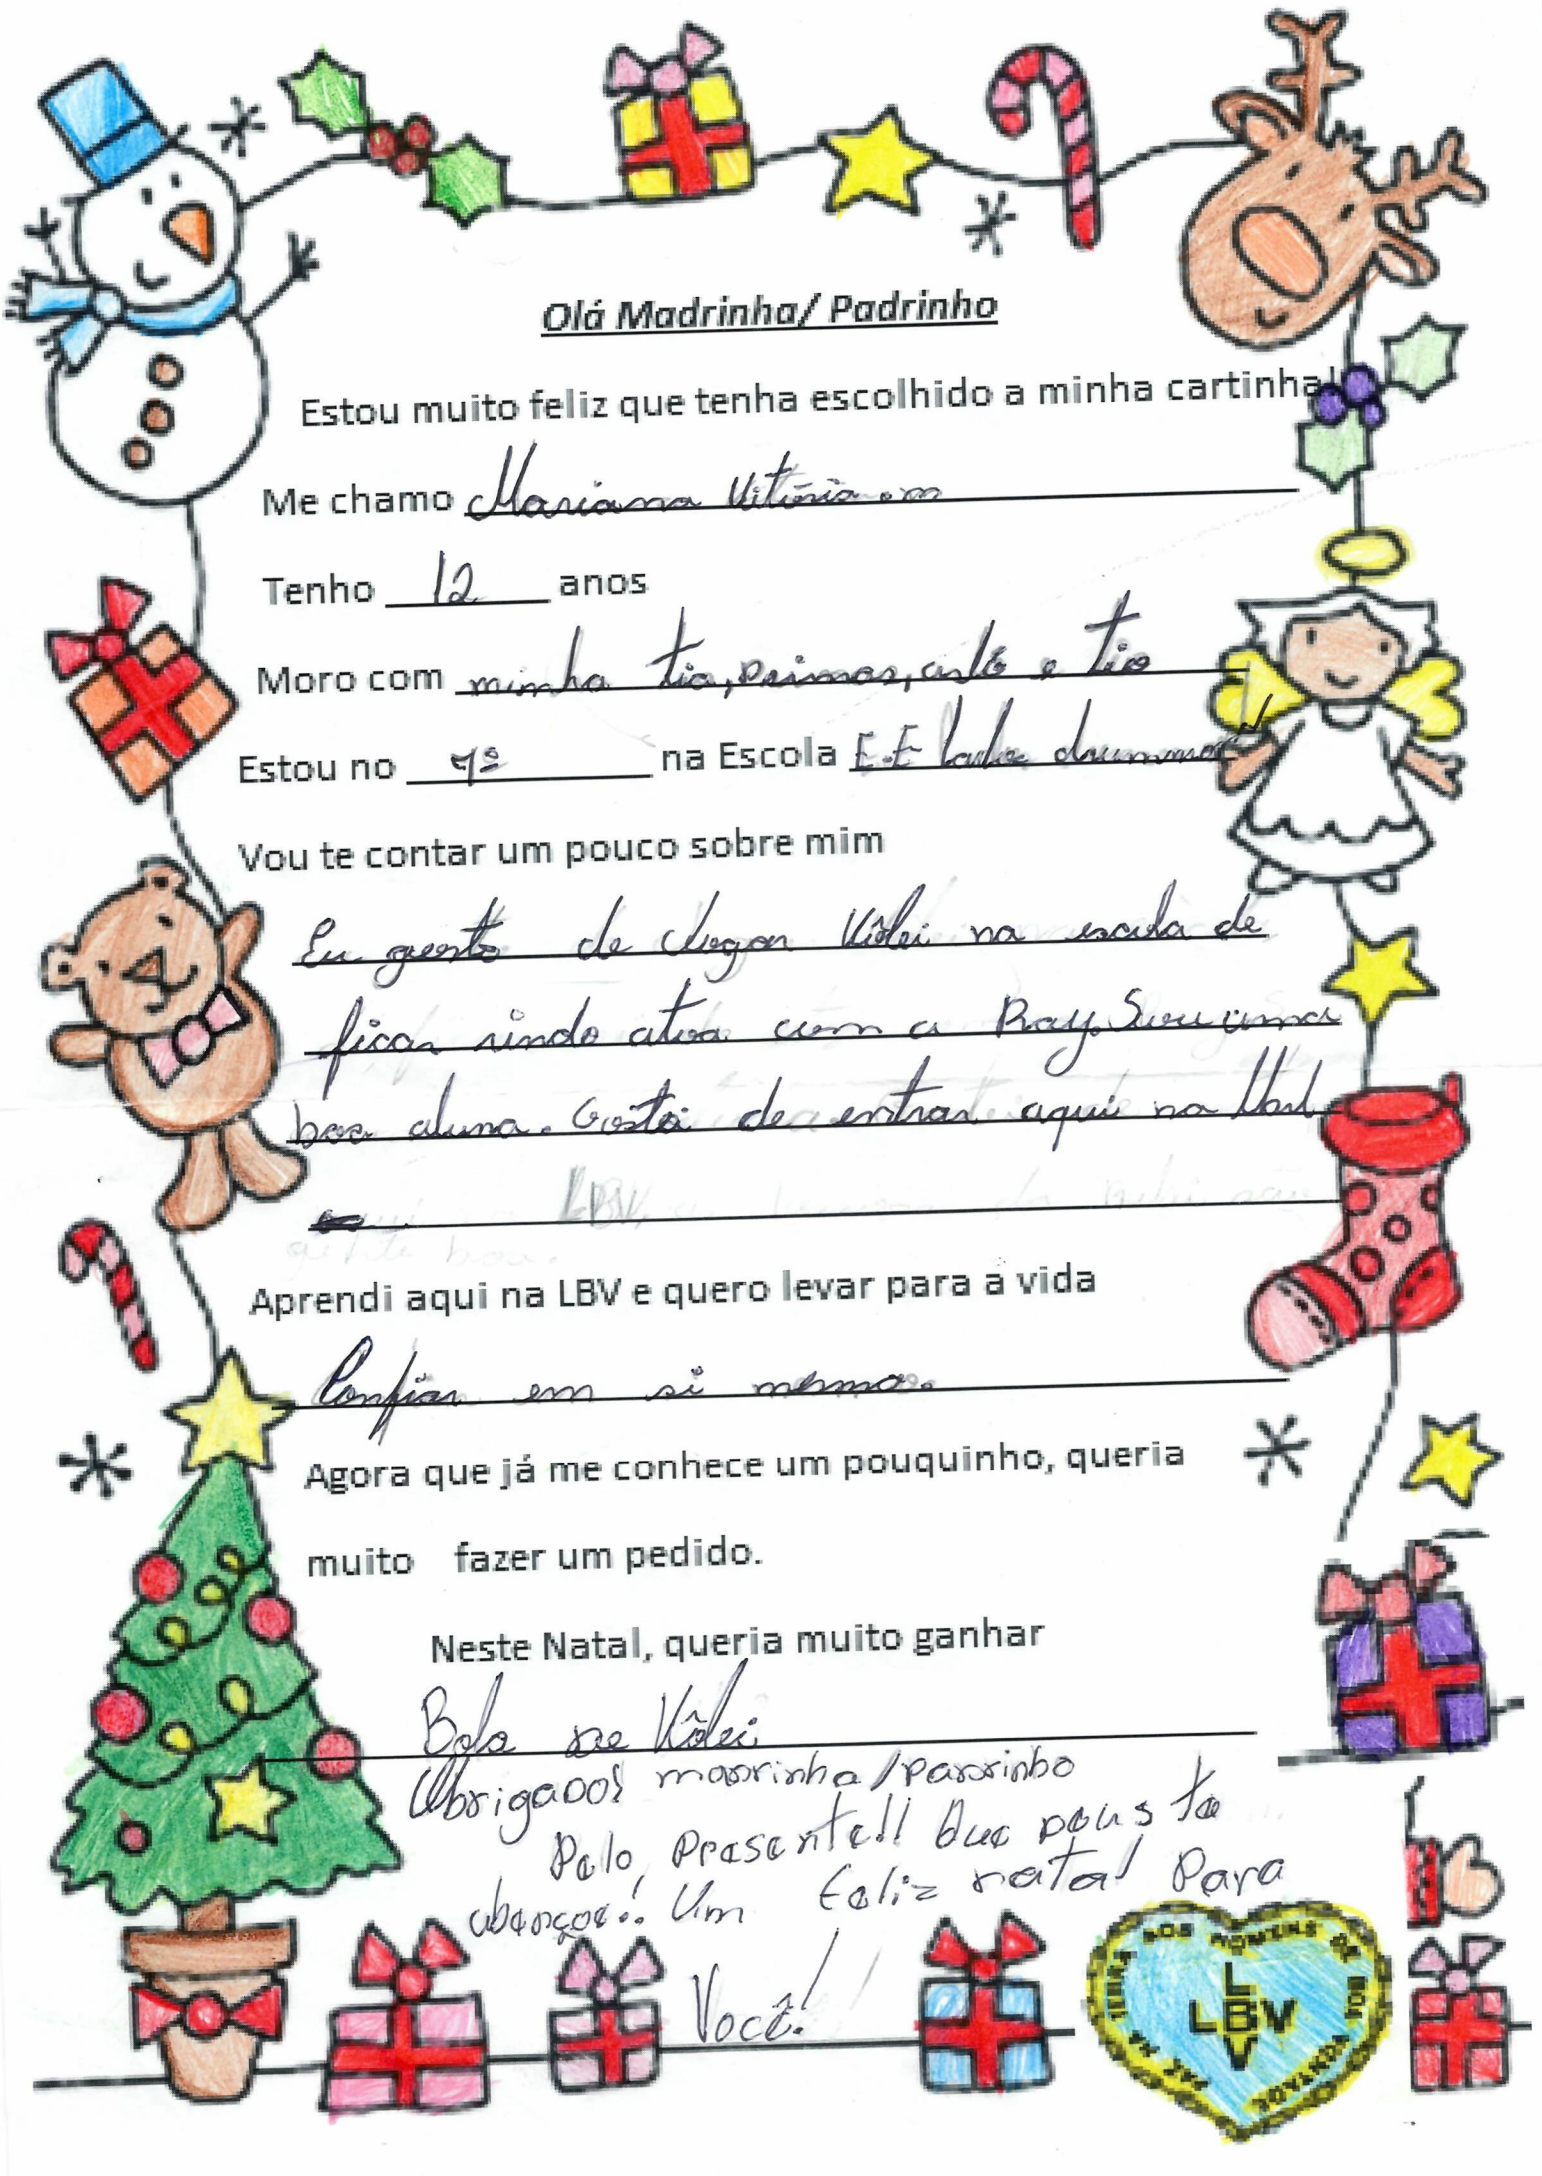 Olá Madrinha/ Padrinho
Estou muito feliz que tenha escolhido a minha cartinha!
Me chamo Mariana Vitória
Tenho 12 anos
Moro com minha tia, primos, e tio
Estou no 7º na Escola E.E drummond
Vou te contar um pouco sobre mim
Eu gosto de Vôlei na escola de
ficar rindo atoa com a Ray. Sou uma
boa aluna. Gostei de entrar aqui na
LBV
Aprendi aqui na LBV e quero levar para a vida
Confiar em si mesmo.
Agora que já me conhece um pouquinho, queria
muito fazer um pedido.
Neste Natal, queria muito ganhar
Bola de Vôlei
Obrigado! madrinha/padrinho
Pelo, Presente!! Que Deus te
abençoe!! Um Feliz natal Para
Você!
L
LBV
V